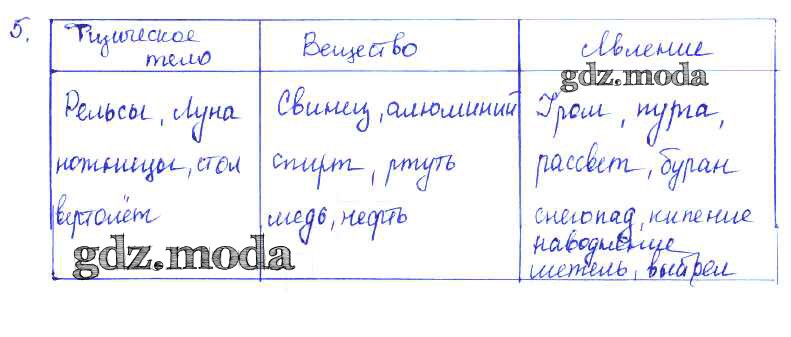 5. Физическое тело Вещество Явление
gdz.moda
Рельсы, Луна Свинец, алюминий Гром, пурга,
ножницы, стол спирт, ртуть рассвет, буран
вертолёт медь, нефть снегопад, кипение
наводнение
gdz.moda метель, выстрел